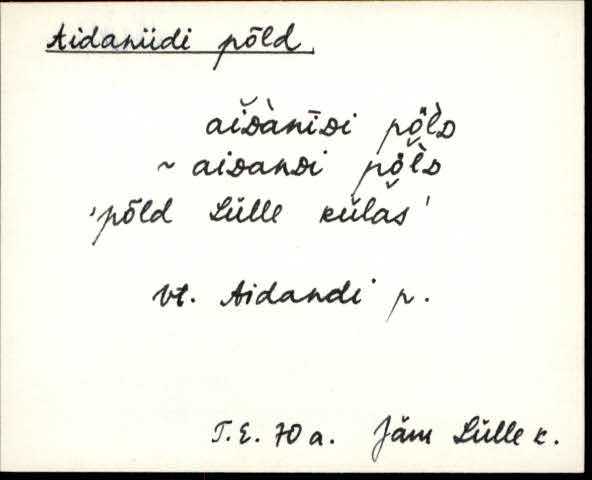 Aidaniidi põld
aĭᴅànīᴅi põ̭l̀ᴅ
~ aiᴅanᴅi põ̭l̀ᴅ
'põld Lülle külas̆'
vt. Aidandi p.
T.E. 70 a. Jäm Lülle k.